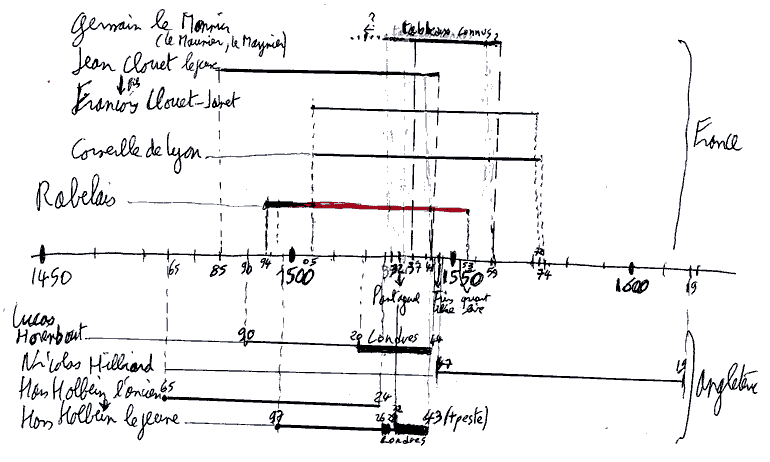 Germain le Monnier ? tableaux connus
(le Maunier, le Maynier)
Jean Clouet le jeune
fils
François Clouet-Janet
France
Corneille de Lyon
Rabelais
1450 65 85 90 94 1500 05 32 37 1550 53 59 74 1600 19
Pantagruel Tiers livre quart livre
Lucas
Horenbout 90 Londres 44
Nicolas Hilliard 47 19
Hans Holbein l'ancien 65 24
Hans Holbein le jeune 97 26 28 32 43 (+peste)
Londres
Angleterre